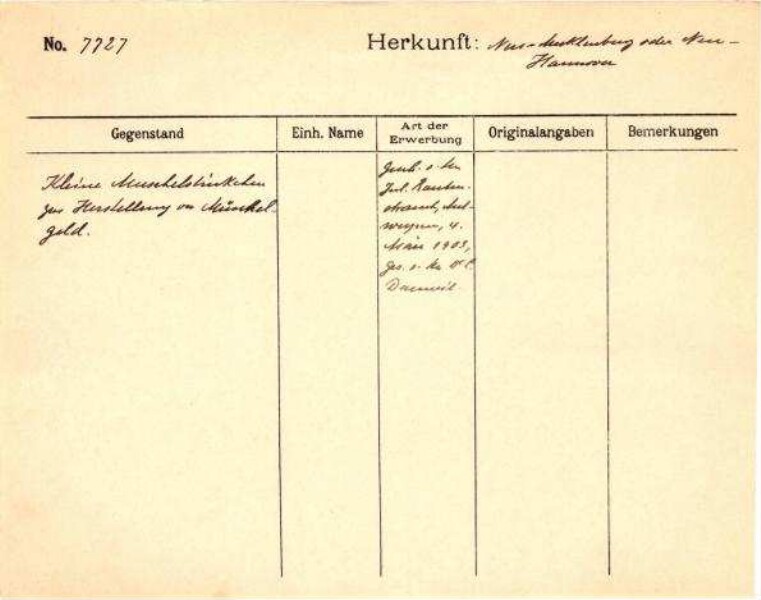 No. 7727
Herkunft: Neu-Mecklenburg oder Neu-
Hannover
Gegenstand
Einh. Name
Art der
Erwerbung
Originalangaben
Bemerkungen
Kleine Muschelstückchen
zur Herstellung von Muschel-
geld.
Gesch. v. Hn
Jul. Rauten-
strauch,
4.
März 1903,
ges. v. Hn